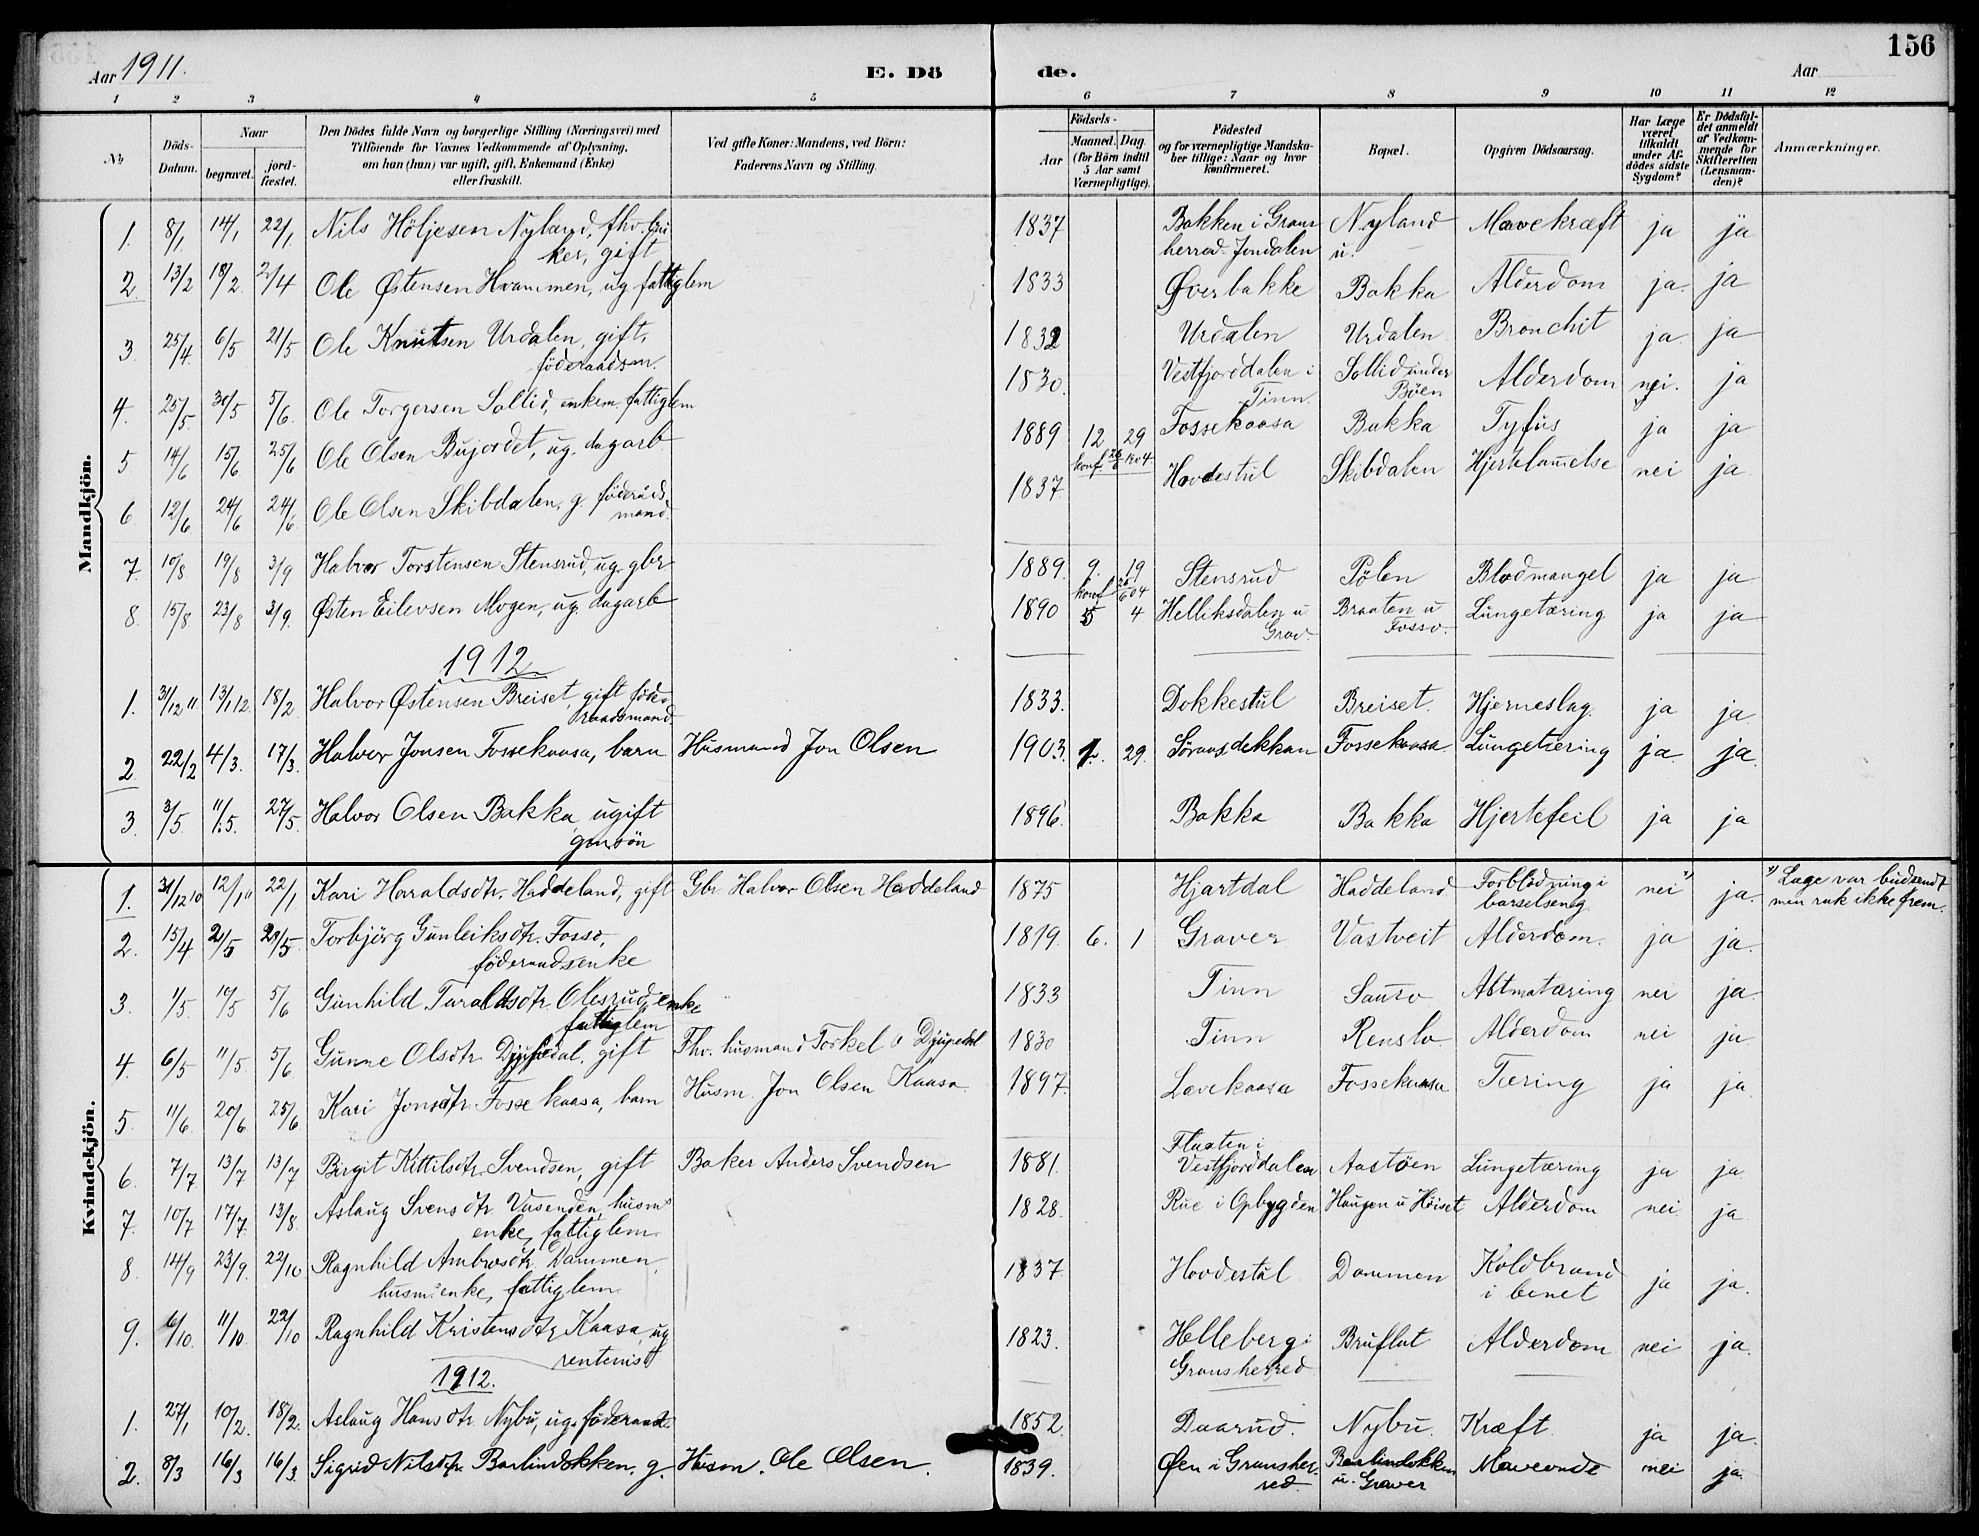 156
Aar 1911. E. Dö de. Aar
1 2 3 4 5 6 7 8 9 10 11 12
No
Döds-Datum.
Naar
begravet. jord-fæstet.
Den Dödes fulde Navn og borgerlige Stilling (Næringsvei) med
Tilföiende for Voxnes Vedkommende af Oplysning,
om han (hun) var ugift, gift, Enkemand (Enke)
eller fraskilt.
Ved gifte Koner: Mandens, ved Börn:
Faderens Navn og Stilling.
Födsels-
Aar Maaned. Dag.
(for Börn indtil
5 Aar samt
Værnepligtige).
Födested
og for værnepligtige Mandska-
ber tillige: Naar og hvor
konfirmeret.
Bopæl.
Opgiven Dödsaarsag.
Har Læge
været
tilkaldt
under Af-
dödes sidste
Sygdom?
Er Dödsfal-
det anmeldt
af Vedkom-
mende for
Skifteretten
(Lensman-
den)?
Anmærkninger.
Mandkjön.
1. 8/1 14/1 22/1 Nils Höljesen Nyland, fhv. bru
ker, gift 1837 Bakken i Grans
herred Jondalen Nyland
u. Mavekræft ja ja
2 13/2 18/2 2/4 Ole Østensen Hvammen, ug. fattiglem 1833 Øverbakke Bakka Alderdom ja. ja
3 25/4 6/5 21/5 Ole Knutsen Urdalen, gift,
föderaadsm. 1832 Urdalen Urdalen Bronchit ja ja
4. 25/5 30/5 5/6 Ole Torgersen Sollid, enkem. fattiglem 1830. Vestfjorddalen i
Tinn. Sollid under
Bøen Alderdom nei. ja
5 14/6 15/6 25/6 Ole Olsen Bujordet, ug. dagarb 1889 12 29
konf 26/6 1904 Fossekaasa Bakka Tyfus ja ja
6 12/6 24/6 24/6 Ole Olsen Skibdalen, g. föderåds
mand. 1837 Hovdestul Skibdalen Hjertelamelse nei ja
7. 10/8 19/8 3/9 Halvor Torstensen Stensrud, ug. gbr 1889. 9. 19
konf 26/6 04 Stensrud Pölen Blodmangel ja ja
8. 15/8 23/8 3/9. Østen Eilevsen Mogen, ug. dagarb 1890 5 4 Helliksdalen u
Grav. Braaten u
Fosso. Lungetæring ja ja
1912
1. 31/12 11 13/1 12. 18/2 Halvor Østensen Breiset, gift föde-
raadsmand 1833. Dokkestul Breiset. Hjerneslag. ja ja.
2 22/2 4/3. 17/3. Halvor Jonsen Fossekaasa, barn Husmand Jon Olsen 1903. 1. 29. Søraasdekkan Fossekaasa Lungetæring ja ja.
3. 3/5. 11/5. 27/5 Halvor Olsen Bakka, ugift
grnsön 1896. Bakka Bakka Hjertefeil ja ja
Kvindekjön.
1. 31/12 10 12/1 11 22/1 Kari Haraldsdtr. Haddeland, gift Gbr Halvor Olsen Haddeland 1875 Hjartdal Haddeland Forblödning i
barselseng nei 1) ja. 1) Læge var budsendt
men rak ikke frem.
2. 15/4 2/5 21/5. Torbjörg Gunleiksdtr. Fosso,
föderaadsenke 1819. 6. 1 Graver Vastveit Alderdom. ja ja.
3. 1/5. 10/5 5/6 Gunhild Taraldsdtr. Olesrud, enke
fattiglem 1833 Tinn Sauro Astmatæring nei ja.
4. 6/5 11/5 5/6 Gunne Olsdtr. Djupedal, gift Fhv. husmand Torkel O Djupedal 1830 Tinn Renslo Alderdom nei ja
5. 11/6. 20/6 25/6. Kari Jonsdtr. Fossekaasa, barn Husm. Jon Olsen Kaasa 1897. Løvekaasa Fossekaasa Tæring ja ja.
6. 7/7 13/7 13/7 Birgit Kittilsdtr Svendsen, gift Baker Anders Svendsen 1881. Flaaten i
Vestfjorddalen Aastöen Lungetæring ja ja.
7. 10/7 17/7. 13/8. Aslaug Svensdtr. Vasenden, husms
enke, fattiglem. 1828. Rue i Opbygden Haugen u Høiset Alderdom nei ja.
8. 14/9 23/9. 22/10 Ragnhild Ambrosdtr. Dammen,
husm.s enke, fattiglem. 1837 Hovdestul Dammen Koldbrand
i benet ja ja.
9. 6/10. 11/10 22/10 Ragnhild Kristensdtr. Kaasa, ug
rentenist 1823. Helleberg i
Gransherred Bruflat Alderdom nei ja.
1912.
1. 27/1 10/2. 18/2. Aslaug Hansdtr. Nybu, ug. föderaads 1852 Daarud. Nybu. Kræft ja ja.
2. 8/3 16/3 16/3 Sigrid Nilsdtr. Barlindokken. g. Husm. Ole Olsen. 1839. Øen i Gransher-
red. Barlindokken
u. Graver Maveonde nei ja.